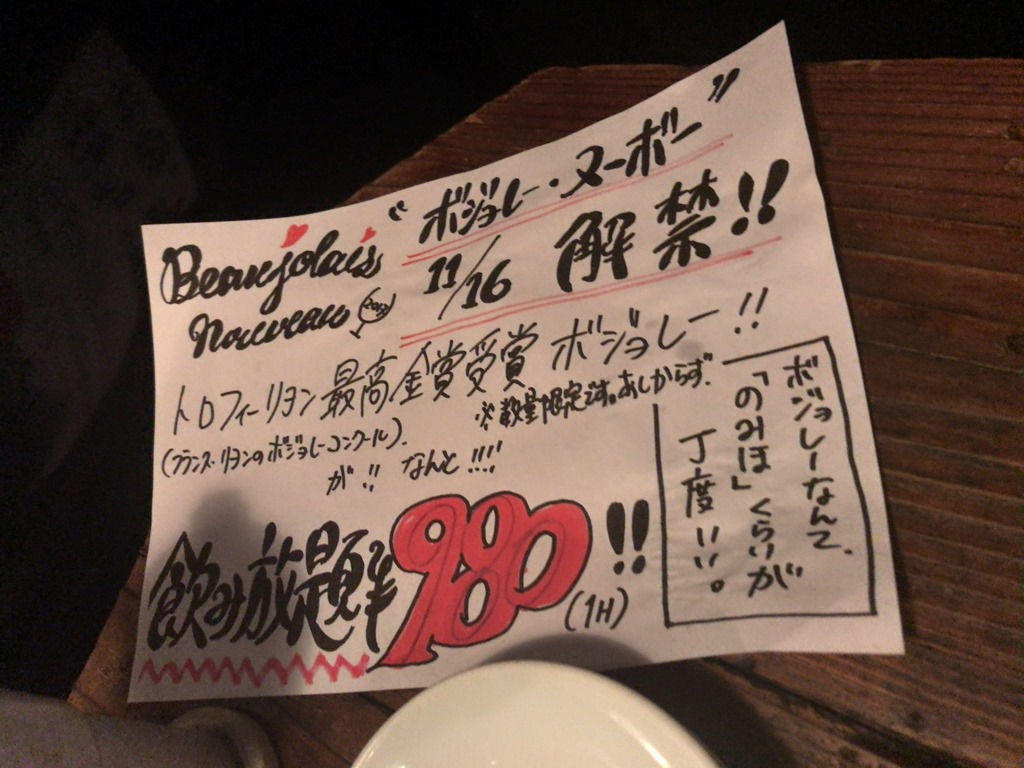 Beaujolais
nouveau
"ボジョレー・ヌーボー"
11/16 解禁!!
トロフィーリヨン最高金賞受賞 ボジョレー!!
(フランス・リヨンのボジョレーコンクール).
※数量限定です。あしからず.
が!! なんと!!!!
飲み放題 980!!
(1H)
ボジョレーなんて、
「のみほ」くらいが
丁度いい。